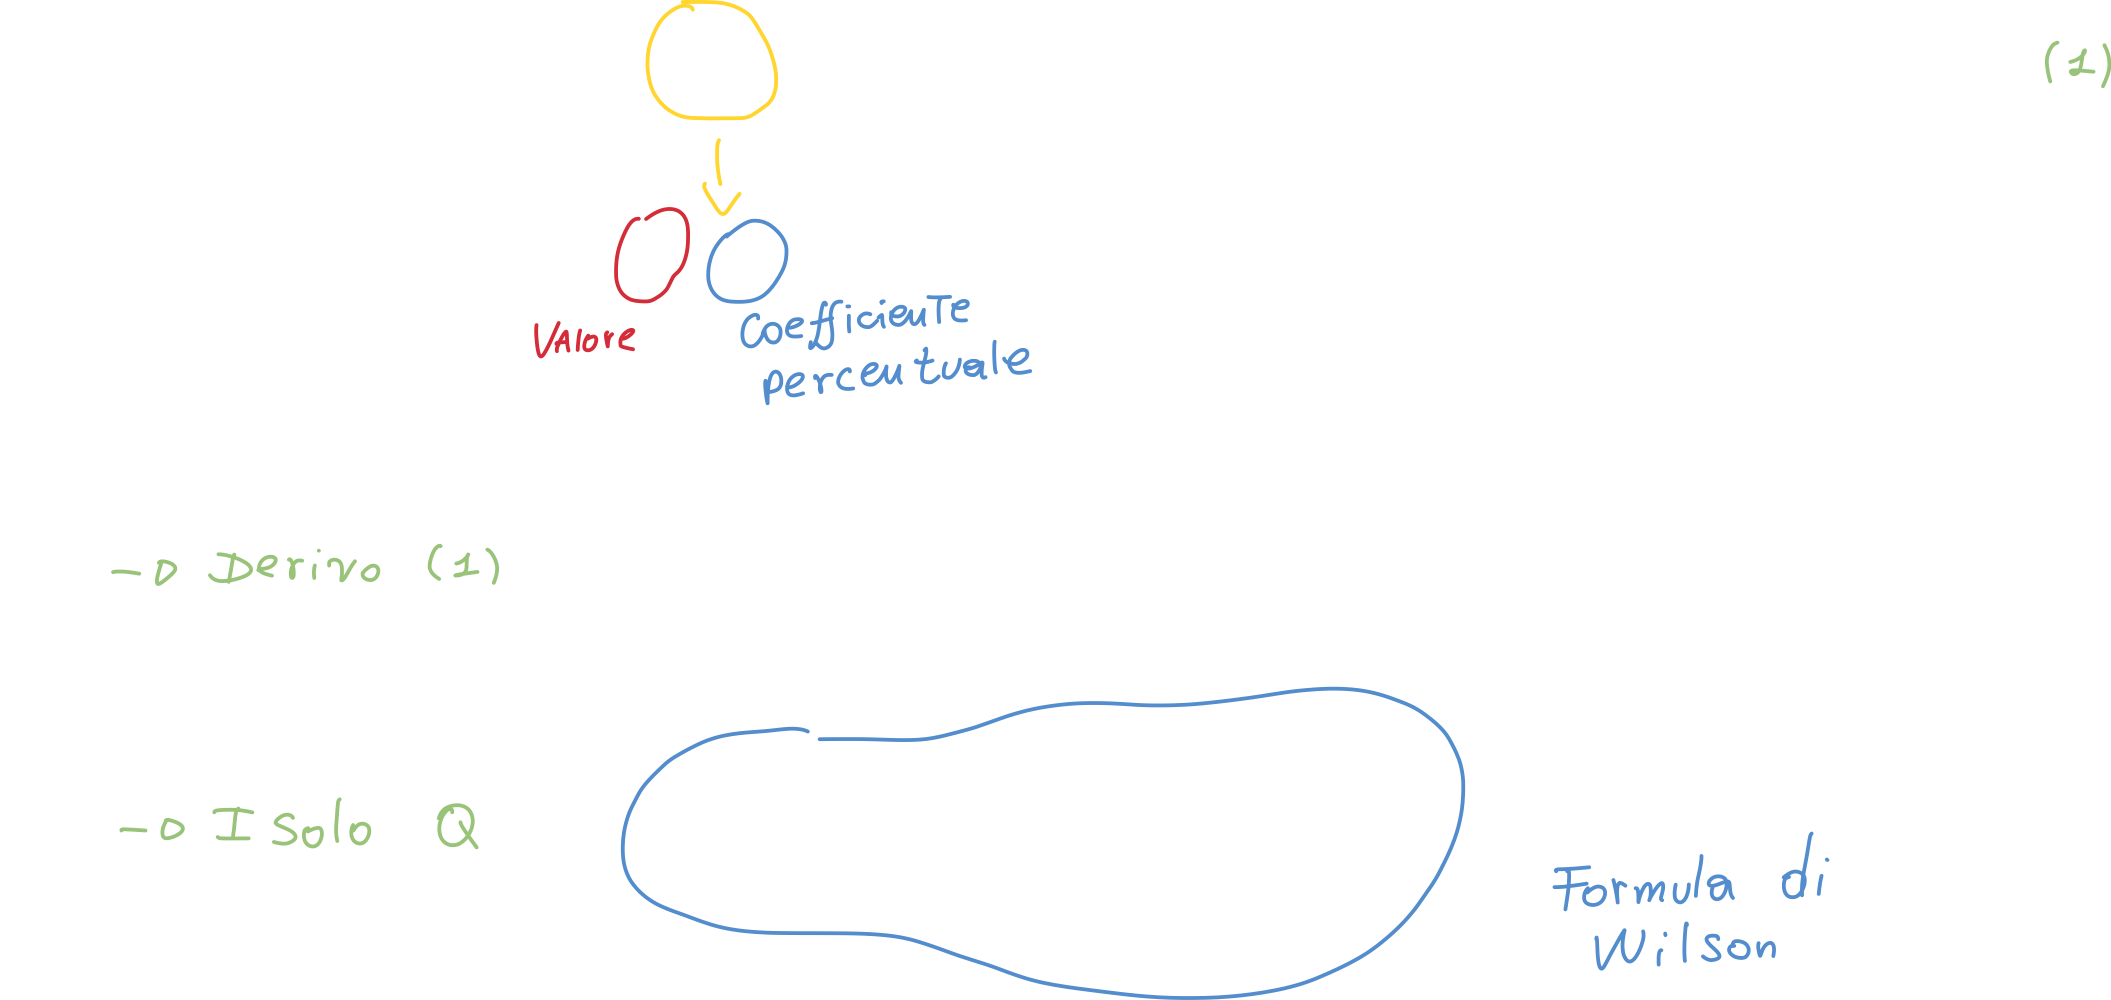 (1)
Valore
Coefficiente
percentuale
→ Derivo (1)
→ Isolo Q
Formula di
Wilson